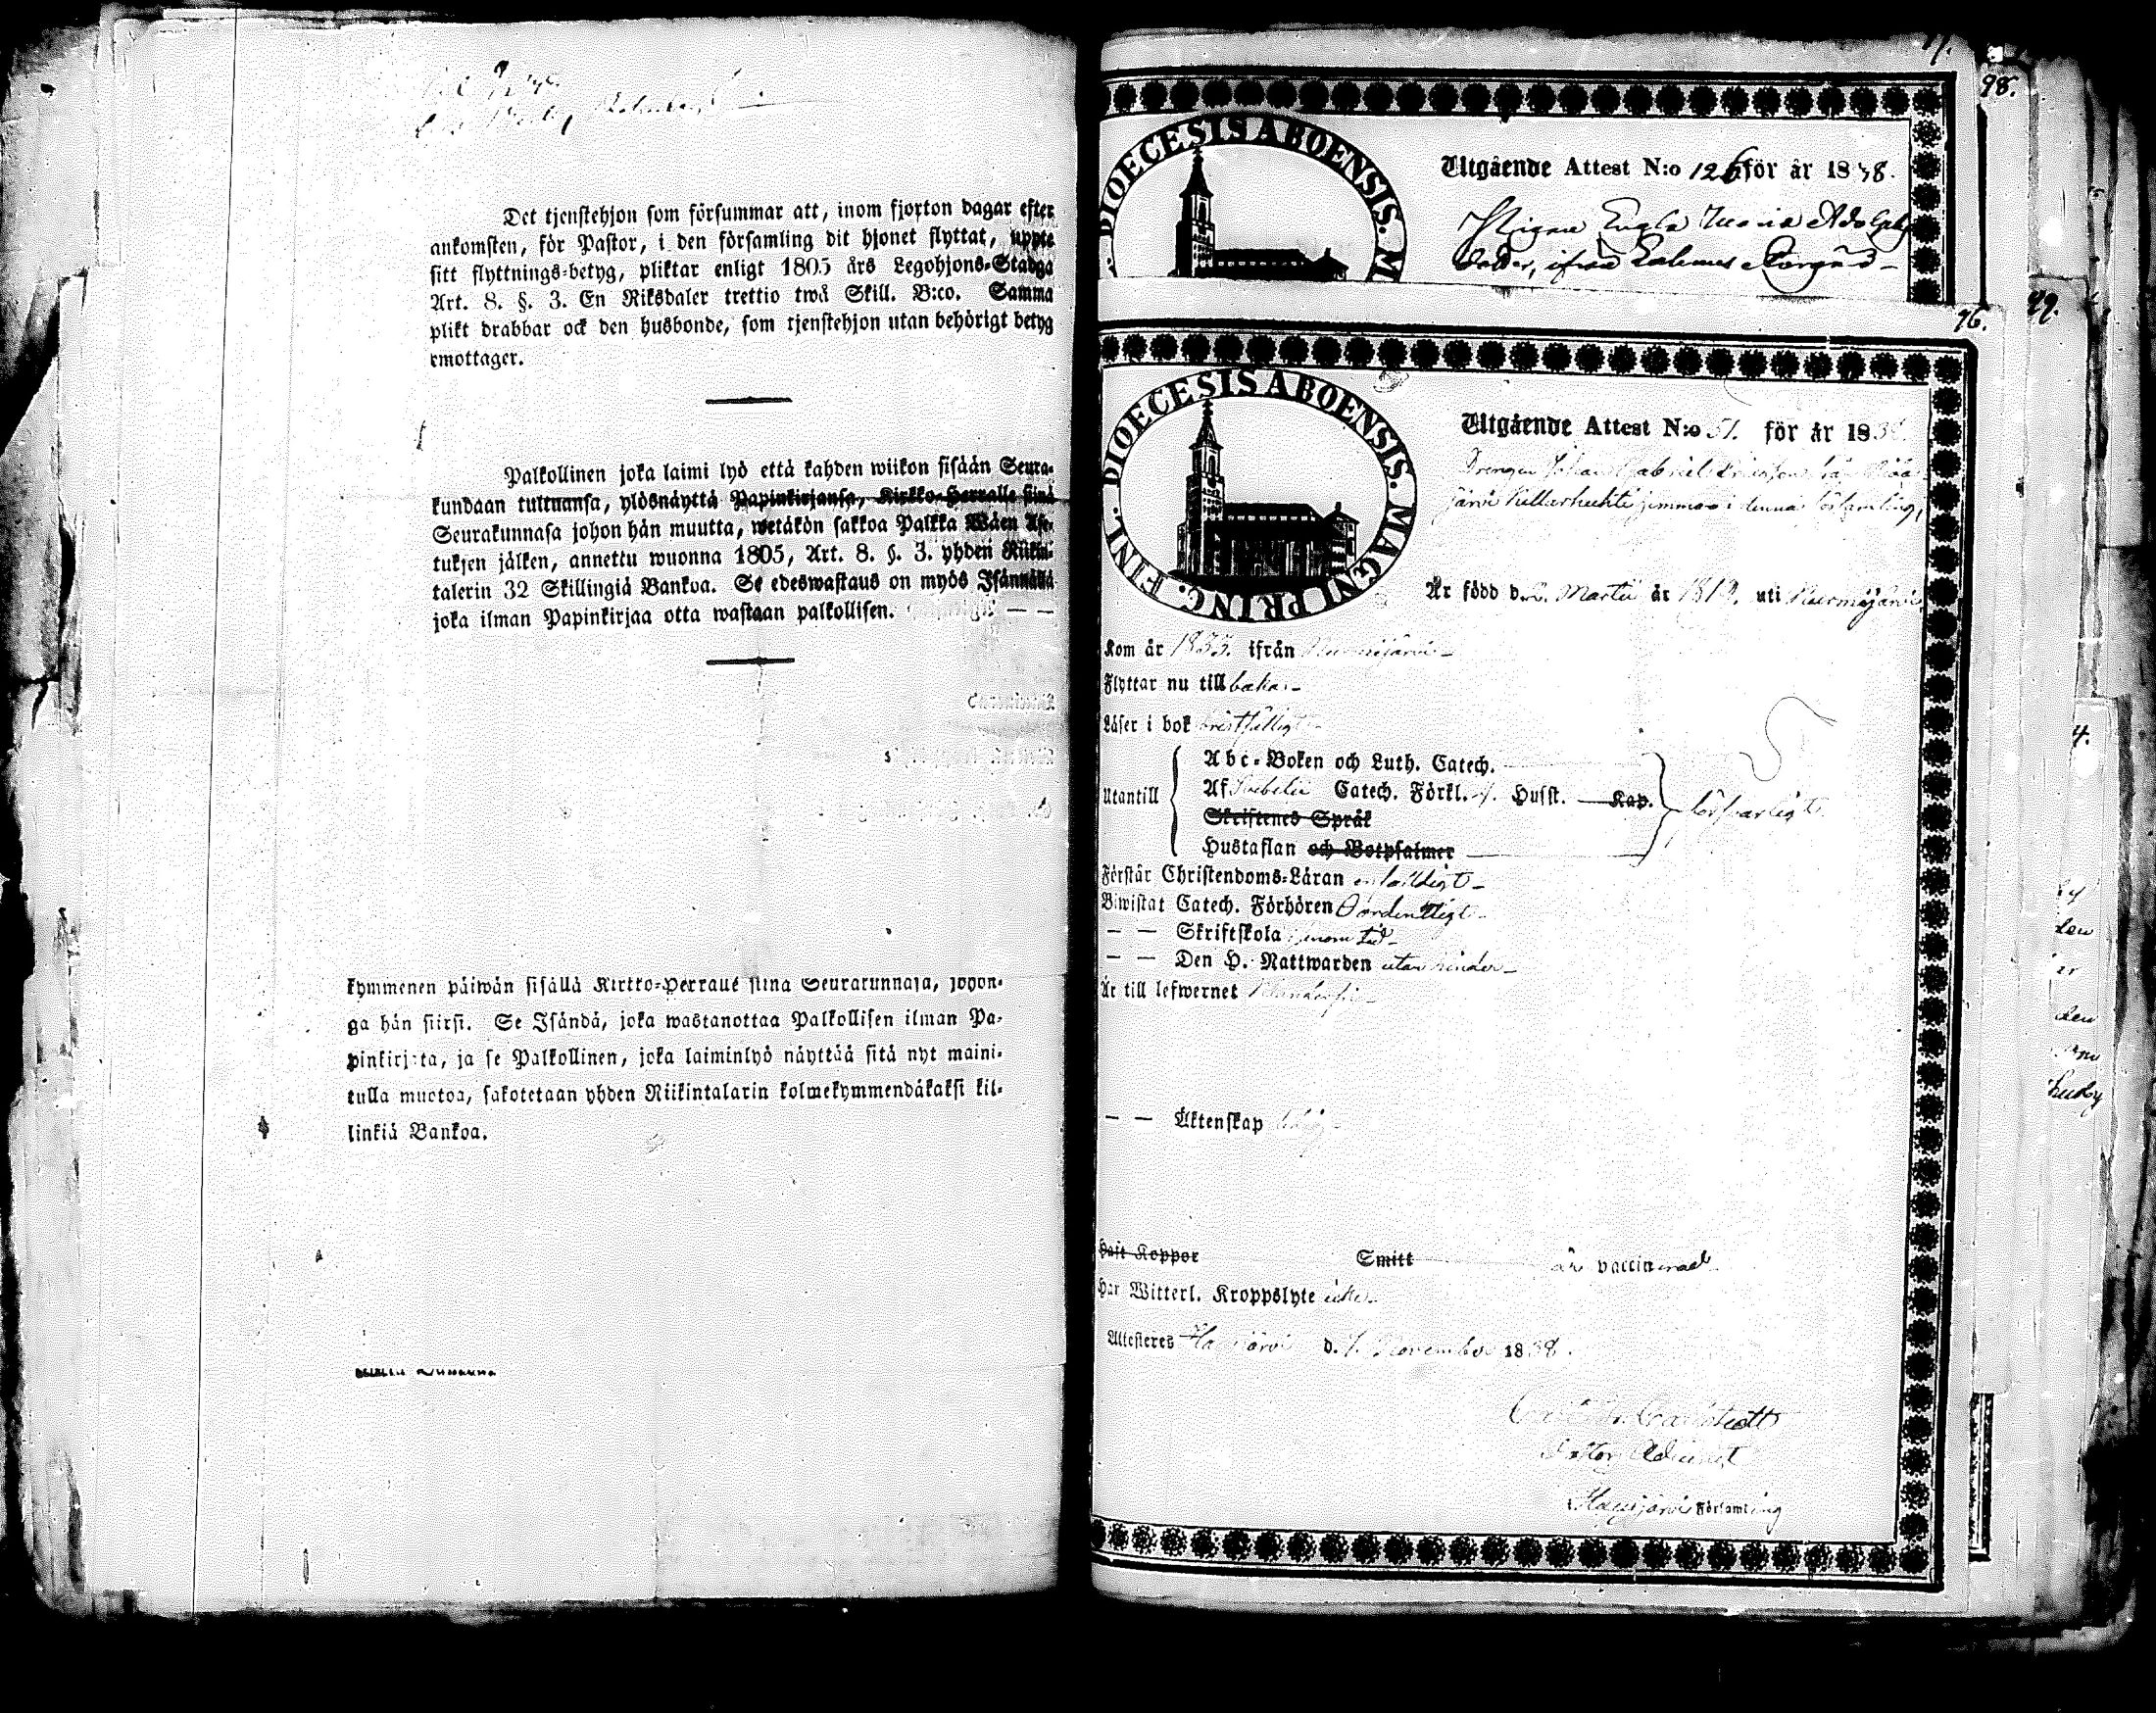 Det tjenstehjon som försummar att, inom fjorton dagar efter
ankomsten, för Pastor, i den församling dit hjonet flyttat, uppte
sitt flyttnings-betyg, pliktar enligt 1805 års Legohjons-Stadga
Art. 8. §. 3. En Riksdaler trettio twå Skill. B:co. Samma
plikt drabbar ock den husbonde, som tjenstehjon utan behörigt betyg
emottager.
Palkollinen joka laimi lyö että kahden wiikon sisään Seura-
kundaan tultuansa, ylösnäyttä Papinkirjansa, Kirkko-Herralle siinä
Seurakunnasa johon hän muutta, wetäkön sakkoa Palkka Wäen Ase-
tuksen jälken, annettu wuonna 1805, Art. 8. §. 3. yhden Riikin-
talerin 32 Skillingiä Bankoa. Se edeswastaus on myös Isännällä
joka ilman Papinkirjaa otta wastaan palkollisen.
kymmenen päiwän sisällä Kirkko-Herralle siina Seurakunnasa, johon-
ga hän siirsi. Se Isändä, joka wastanottaa Palkollisen ilman Pa-
pinkirjata, ja se Palkollinen, joka laiminlyö näyttää sitä nyt maini-
tulla muotoa, sakotetaan yhden Riikintalarin kolmekymmendäkaksi kil-
linkiä Bankoa.
98.
DIOECESIS ABOENSIS. M
Utgående Attest N:o 126 för år 1838.
Pigan Engla Maria Adolphs
dotter, ifrån
76.
99.
DIOECESIS ABOENSIS. MAGNI PRINC. FINL.
Utgående Attest N:o 51. för år 1838
Drengen Johan Gabriel Ericsson från
järvi Kullarhuhta hemman i denna församling,
Är född d. 2. Martii år 1819. uti Nurmijärvi
Kom år 1833. ifrån Nurmijärvi
Flyttar nu till baka
Läser i bok bristfälligt
Utantill
Abc-Boken och Luth. Catech.
Af Svebelii Catech. Förkl. Husst. Kap.
försvarligt
Skriftenes Språk
Hustaflan och Botpsalmer
Förstår Christendoms-Läran enfaldigt
Biwistat Catech. Förhören Oordentligt
— — Skriftskola
— — Den H. Nattwarden utan hinder
Är till lefwernet klanderfri
— — Äktenskap ledig
Haft Koppor Smitt är vaccinerad
Har Witterl. Kroppslyte icke
Attesteres Hausjärvi d. 1. November 1838.
Pastors Adjunct
Hausjärvi Församling
4.